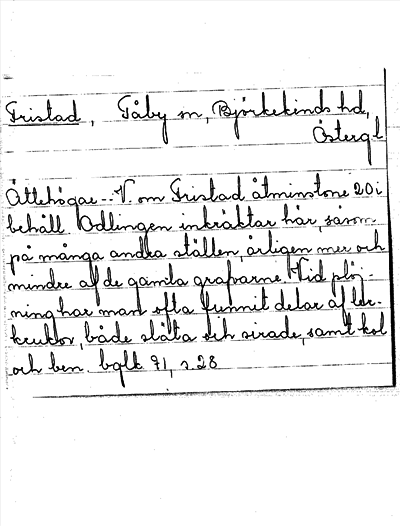 Fristad, Tåby sn, Björkekinds hd,
Östergl
Ättehögar.-- V. om Fristad åtminstone 20 i
behåll. Odlingen inkräktar här, såsom
på många andra ställen, årligen mer och
mindre af de gamla grafvarne. Vid plöj-
ning har man ofta funnit delar af ler-
krukor, både släta och sirade, samt kol
och ben. bglk 71, s. 28